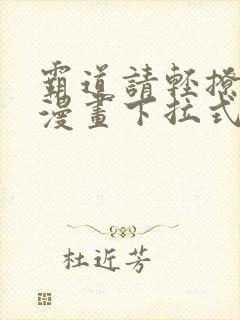 霸道請輕撩
漫畫下拉式
杜近芳